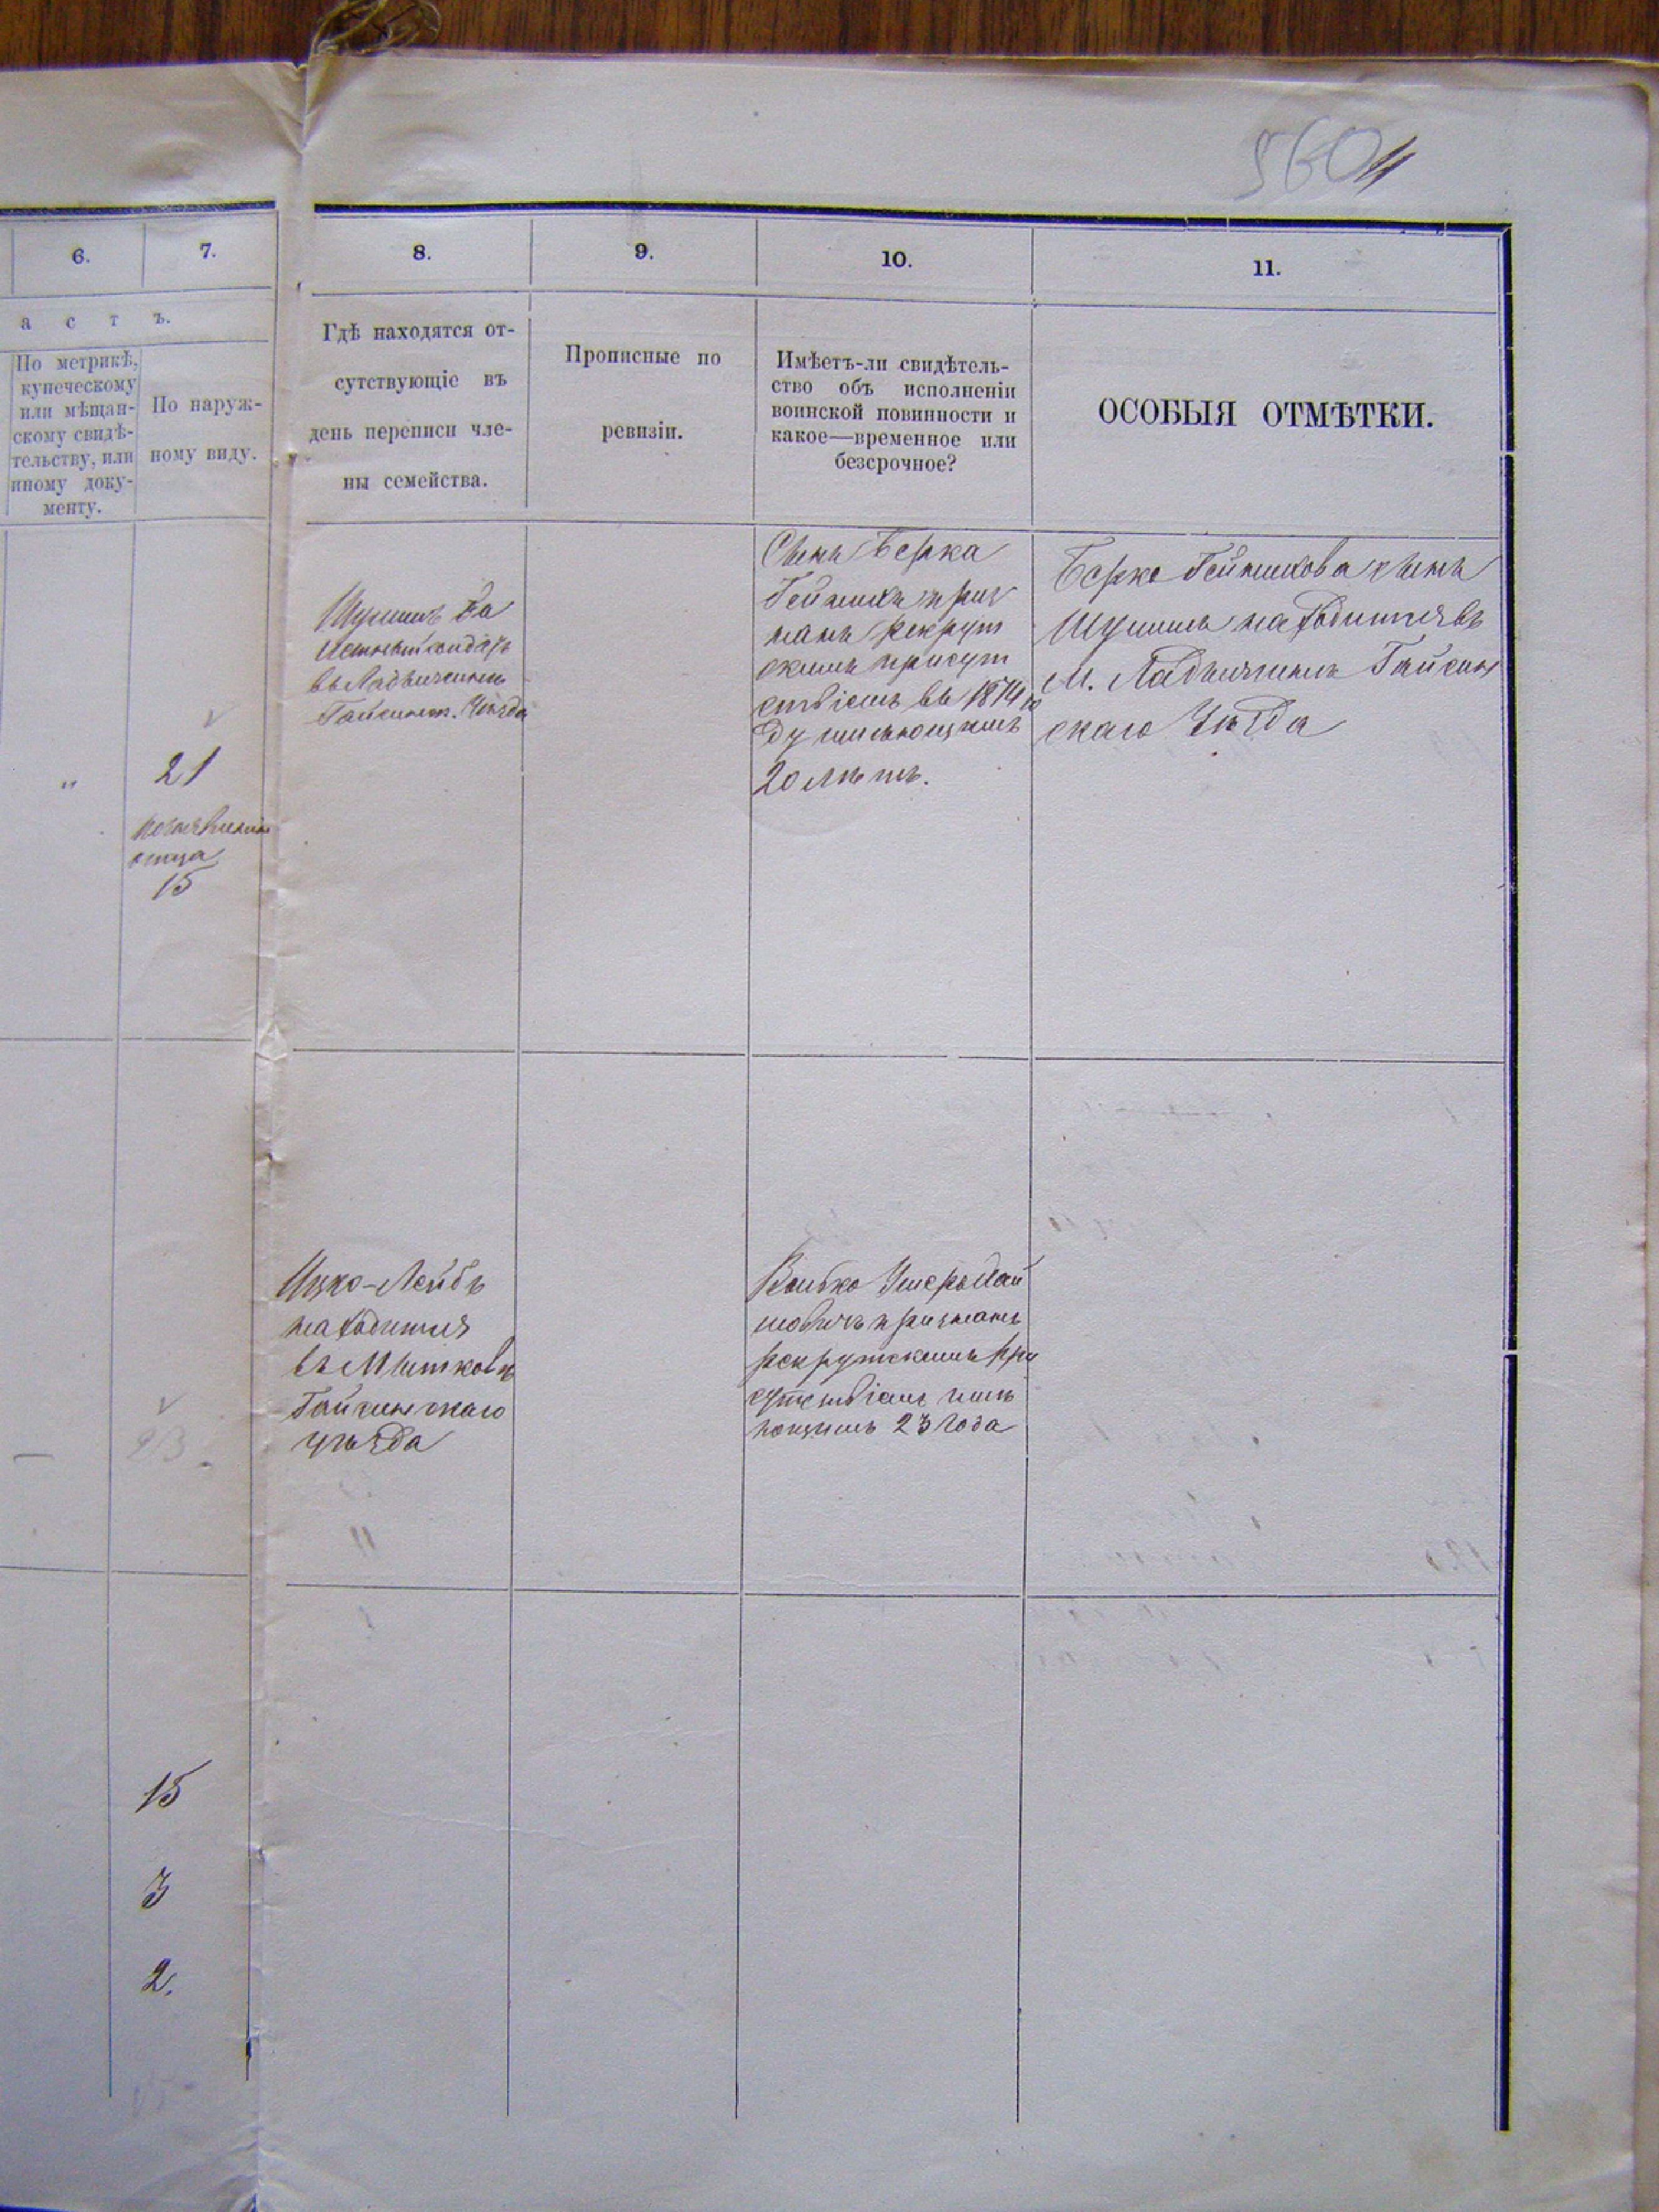 560
6.
7.
8.
9.
10.
11.
а с т ъ.
По метрикѣ,
купеческому
или мѣщан-
скому свидѣ-
тельству, или
иному доку-
менту.
По наруж-
ному виду.
Гдѣ находятся от-
сутствующіе въ
день переписи чле-
ны семейства.
Прописные по
ревизіи.
Имѣетъ-ли свидѣтель-
ство объ исполненіи
воинской повинности и
какое—временное или
безсрочное?
ОСОБЫЯ ОТМѢТКИ.
"
21
отца
15
Шулимъ
въ Ладыжинкѣ
Гайсинск. Уѣзда
Сынъ Берка
Гейниха приз
нанъ рекрут
скимъ присут
ствіемъ въ 1874 го
ду имѣющимъ
20 лѣтъ.
Берко Гейнихова сынъ
Шулимъ находится въ
М. Ладыжинкѣ Гайсин
скаго Уѣзда
—
23
Ицко-Лейбъ
находится
въ Митковѣ
Гайсинскаго
уѣзда
Волько
шовичъ признанъ
рекрутскимъ при
сутствіемъ имѣ
ющимъ 23 года
15
3
2.